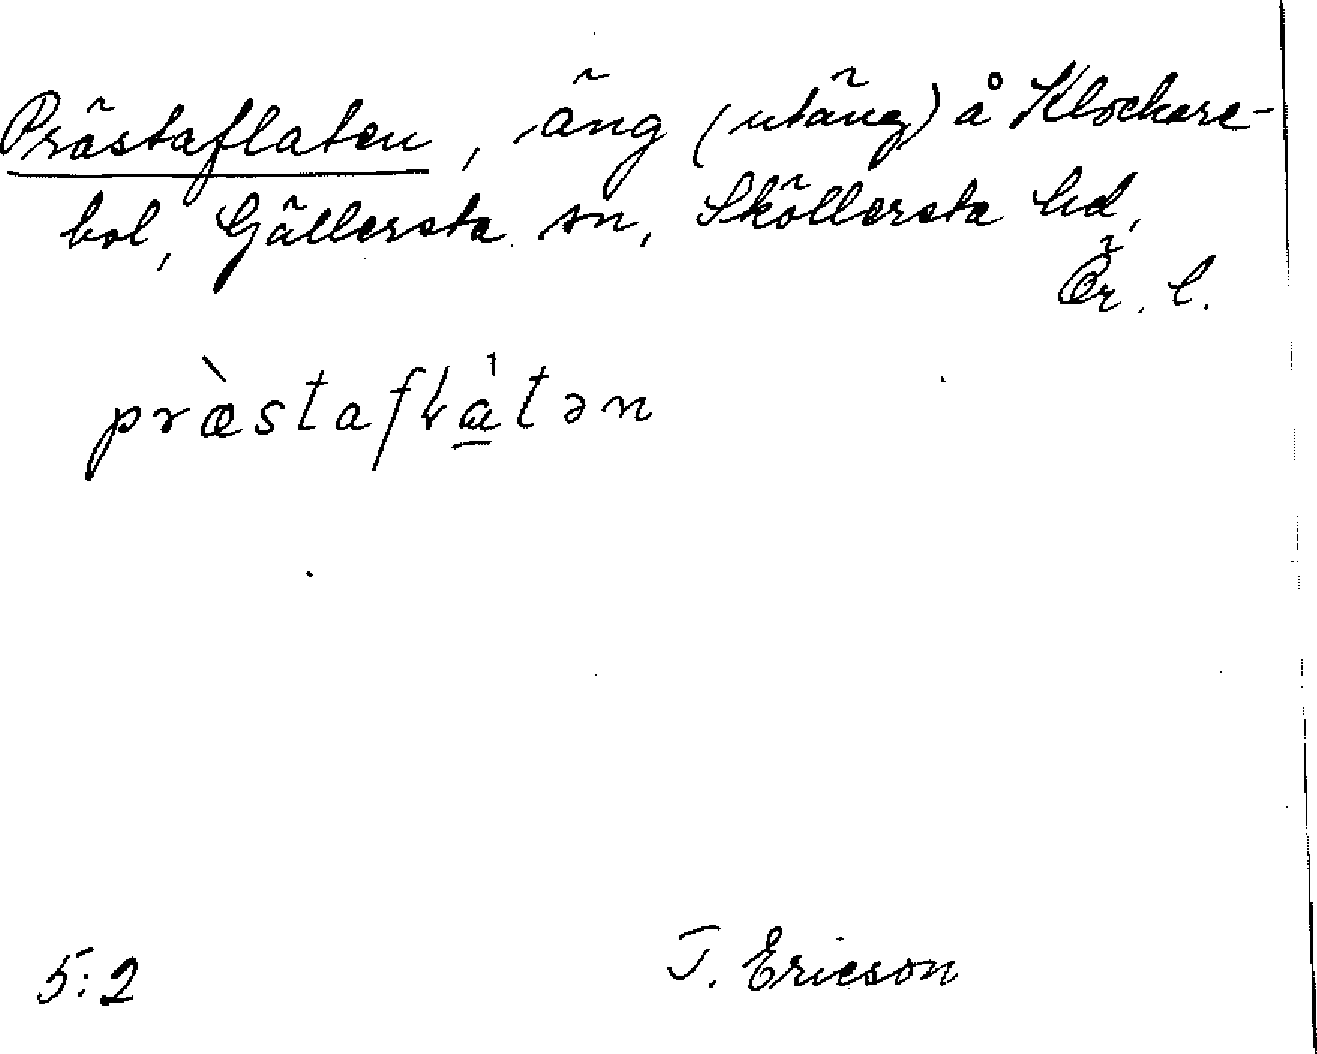 Prästaflaten, äng (utäng) å Klockare-
bol, Gällersta sn, Sköllersta hd,
Ör. l.
præ̀staflà̱tən
5:2
J. Ericson